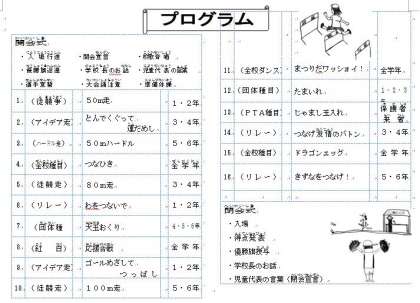 プログラム
開会式
・入場行進 ・開会宣言 ・校歌斉唱
・優勝旗返還 ・学校長のお話 ・児童代表の言葉
・選手宣誓 ・大会諸注意 ・準備体操
1. (徒競争) 50m走. 1・2年
2. (アイデア走) とんでくぐって
運だめし. 3・4年
3. (ハードル走) 50mハードル 5・6年
4. (全校種目) つなひき. 全学年
5. (徒競走) 80m走. 3・4年
6. (リレー) わをつないで. 1・2年
7. (団体種 天玉おくり. 4・5・6年
8. (紅 白) 応援合戦 全学年
9. (アイデア走) ゴールめざして
つっぱし 1・2年
10. (徒競走) 100m走. 5・6年
11. (全校ダンス) まつりだワッショイ! 全学年.
12. (団体種目) たまいれ. 1・2・3
13. (PTA種目) じゃまし玉入れ. 保護者
来賓.
14. (リレー) つなげ友情のバトン. 3・4年
15. (全校種目) ドラゴンエッグ. 全学年
16. (リレー) きずなをつなげ! 5・6年
閉会式.
・入場
・得点発表
・優勝旗授与
・学校長のお話.
・児童代表の言葉(閉会宣言)